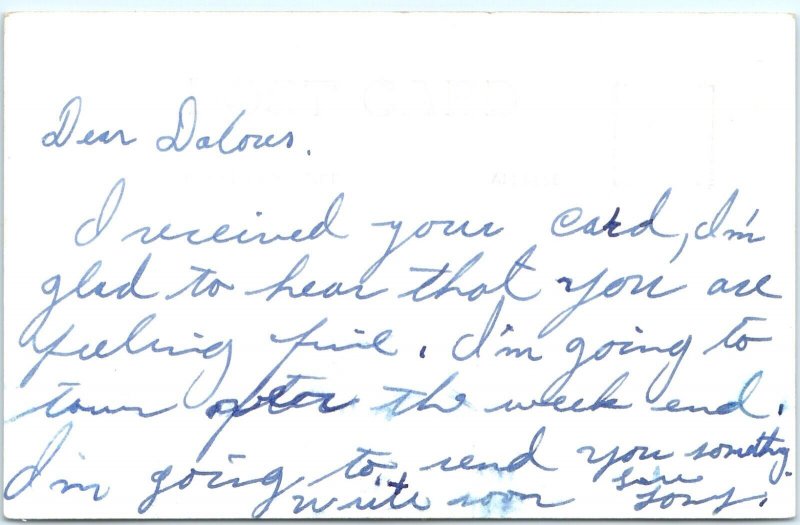 Dear Dalores.
I received your card, I'm
glad to hear that you are
feeling fine. I'm going to
town after the week end.
I'm going to send you somethg.
write soon Tony.